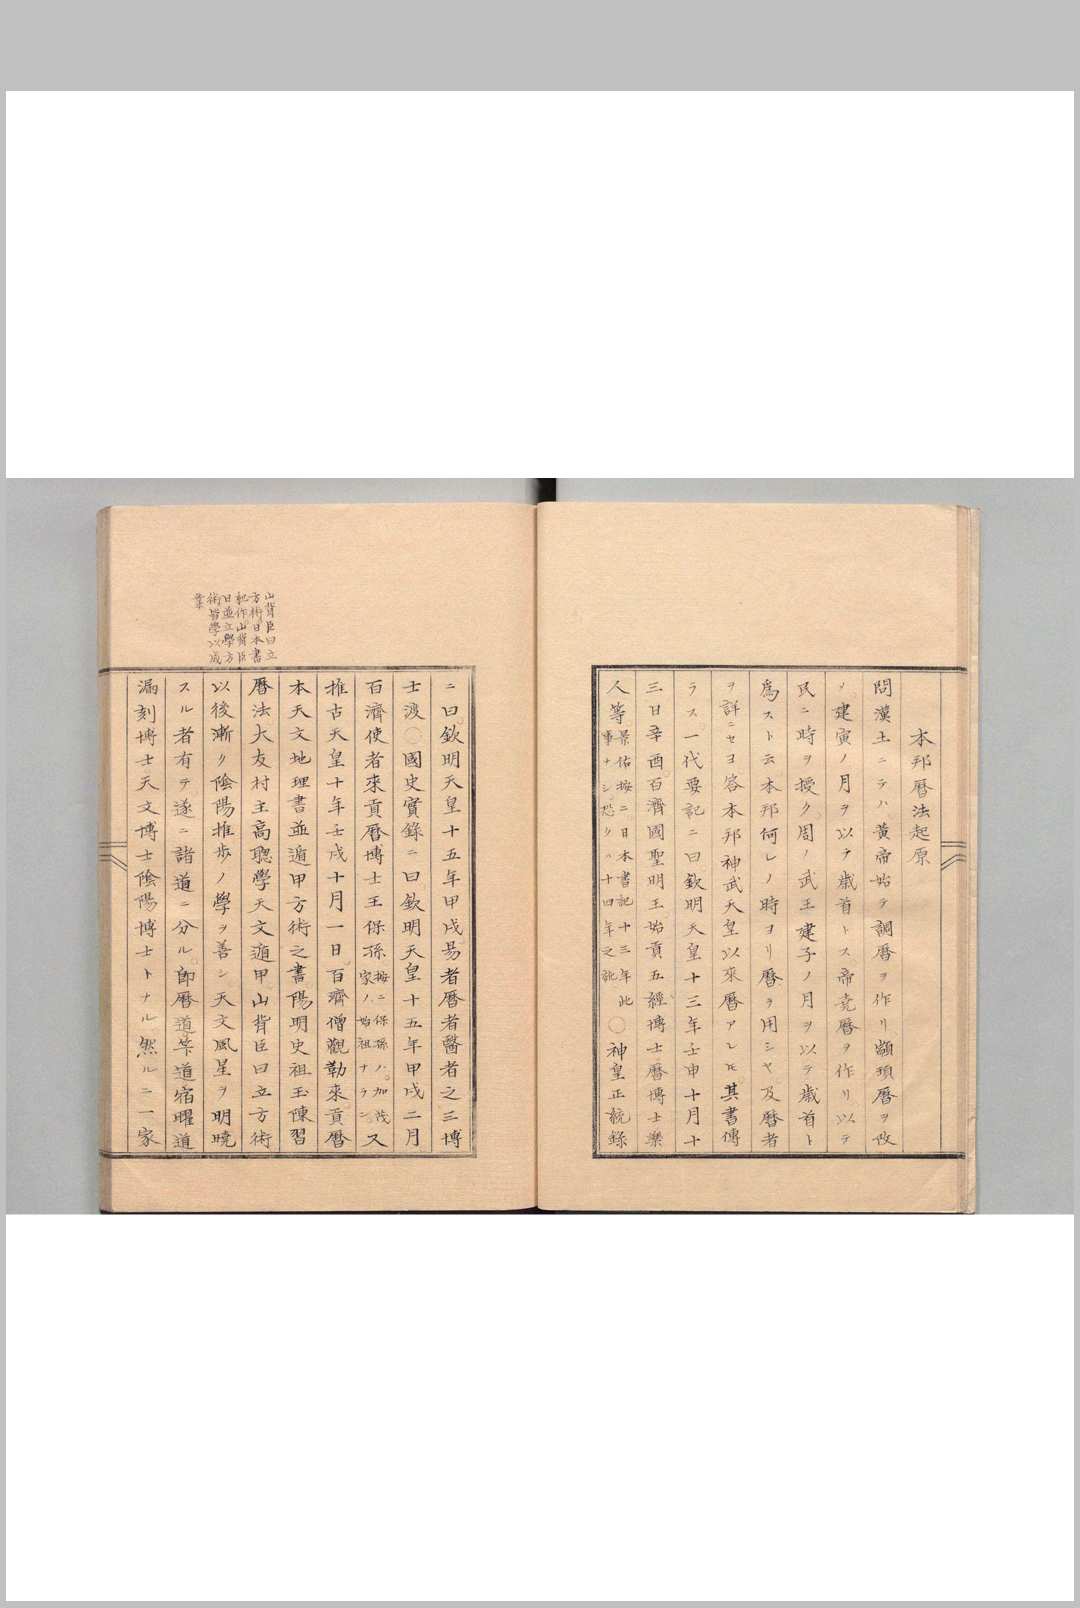 本邦暦法起原
問漢土ニテハ黄帝始テ調暦ヲ作リ顓頊暦ヲ改
メ建寅ノ月ヲ以テ歳首トス帝堯暦ヲ作リ以テ
民ニ時ヲ授ク周ノ武王建子ノ月ヲ以テ歳首ト
為スト云本邦何レノ時ヨリ暦ヲ用シヤ及暦者
ヲ詳ニセヨ答本邦神武天皇以來暦アレ𪜈其書傳
ラス一代要記ニ曰欽明天皇十三年壬申十月十
三日辛酉百濟國聖明王始貢五經博士暦博士樂
人等景佑按ニ日本書記十三年此
事ナシ恐クハ十四年之訛○神皇正統錄
ニ曰欽明天皇十五年甲戌易者暦者醫者之三博
士渡○國史實錄ニ曰欽明天皇十五年甲戌二月
百濟使者來貢暦博士王保孫按ニ保孫ハ加茂
家ノ始祖ナラン又
推古天皇十年壬戌十月一日百濟僧觀勒來貢暦
本天文地理書並遁甲方術之書陽明史祖玉陳習
暦法大友村主高聰學天文遁甲山背臣曰立方術
以後漸ク陰陽推歩ノ學ヲ善シ天文風星ヲ明曉
スル者有テ遂ニ諸道ニ分ル即暦道筭道宿曜道
漏刻博士天文博士陰陽博士トナル然ルニ一家
山背臣曰立
方術日本書
記作山背臣
日並立學方
術皆學以成
業